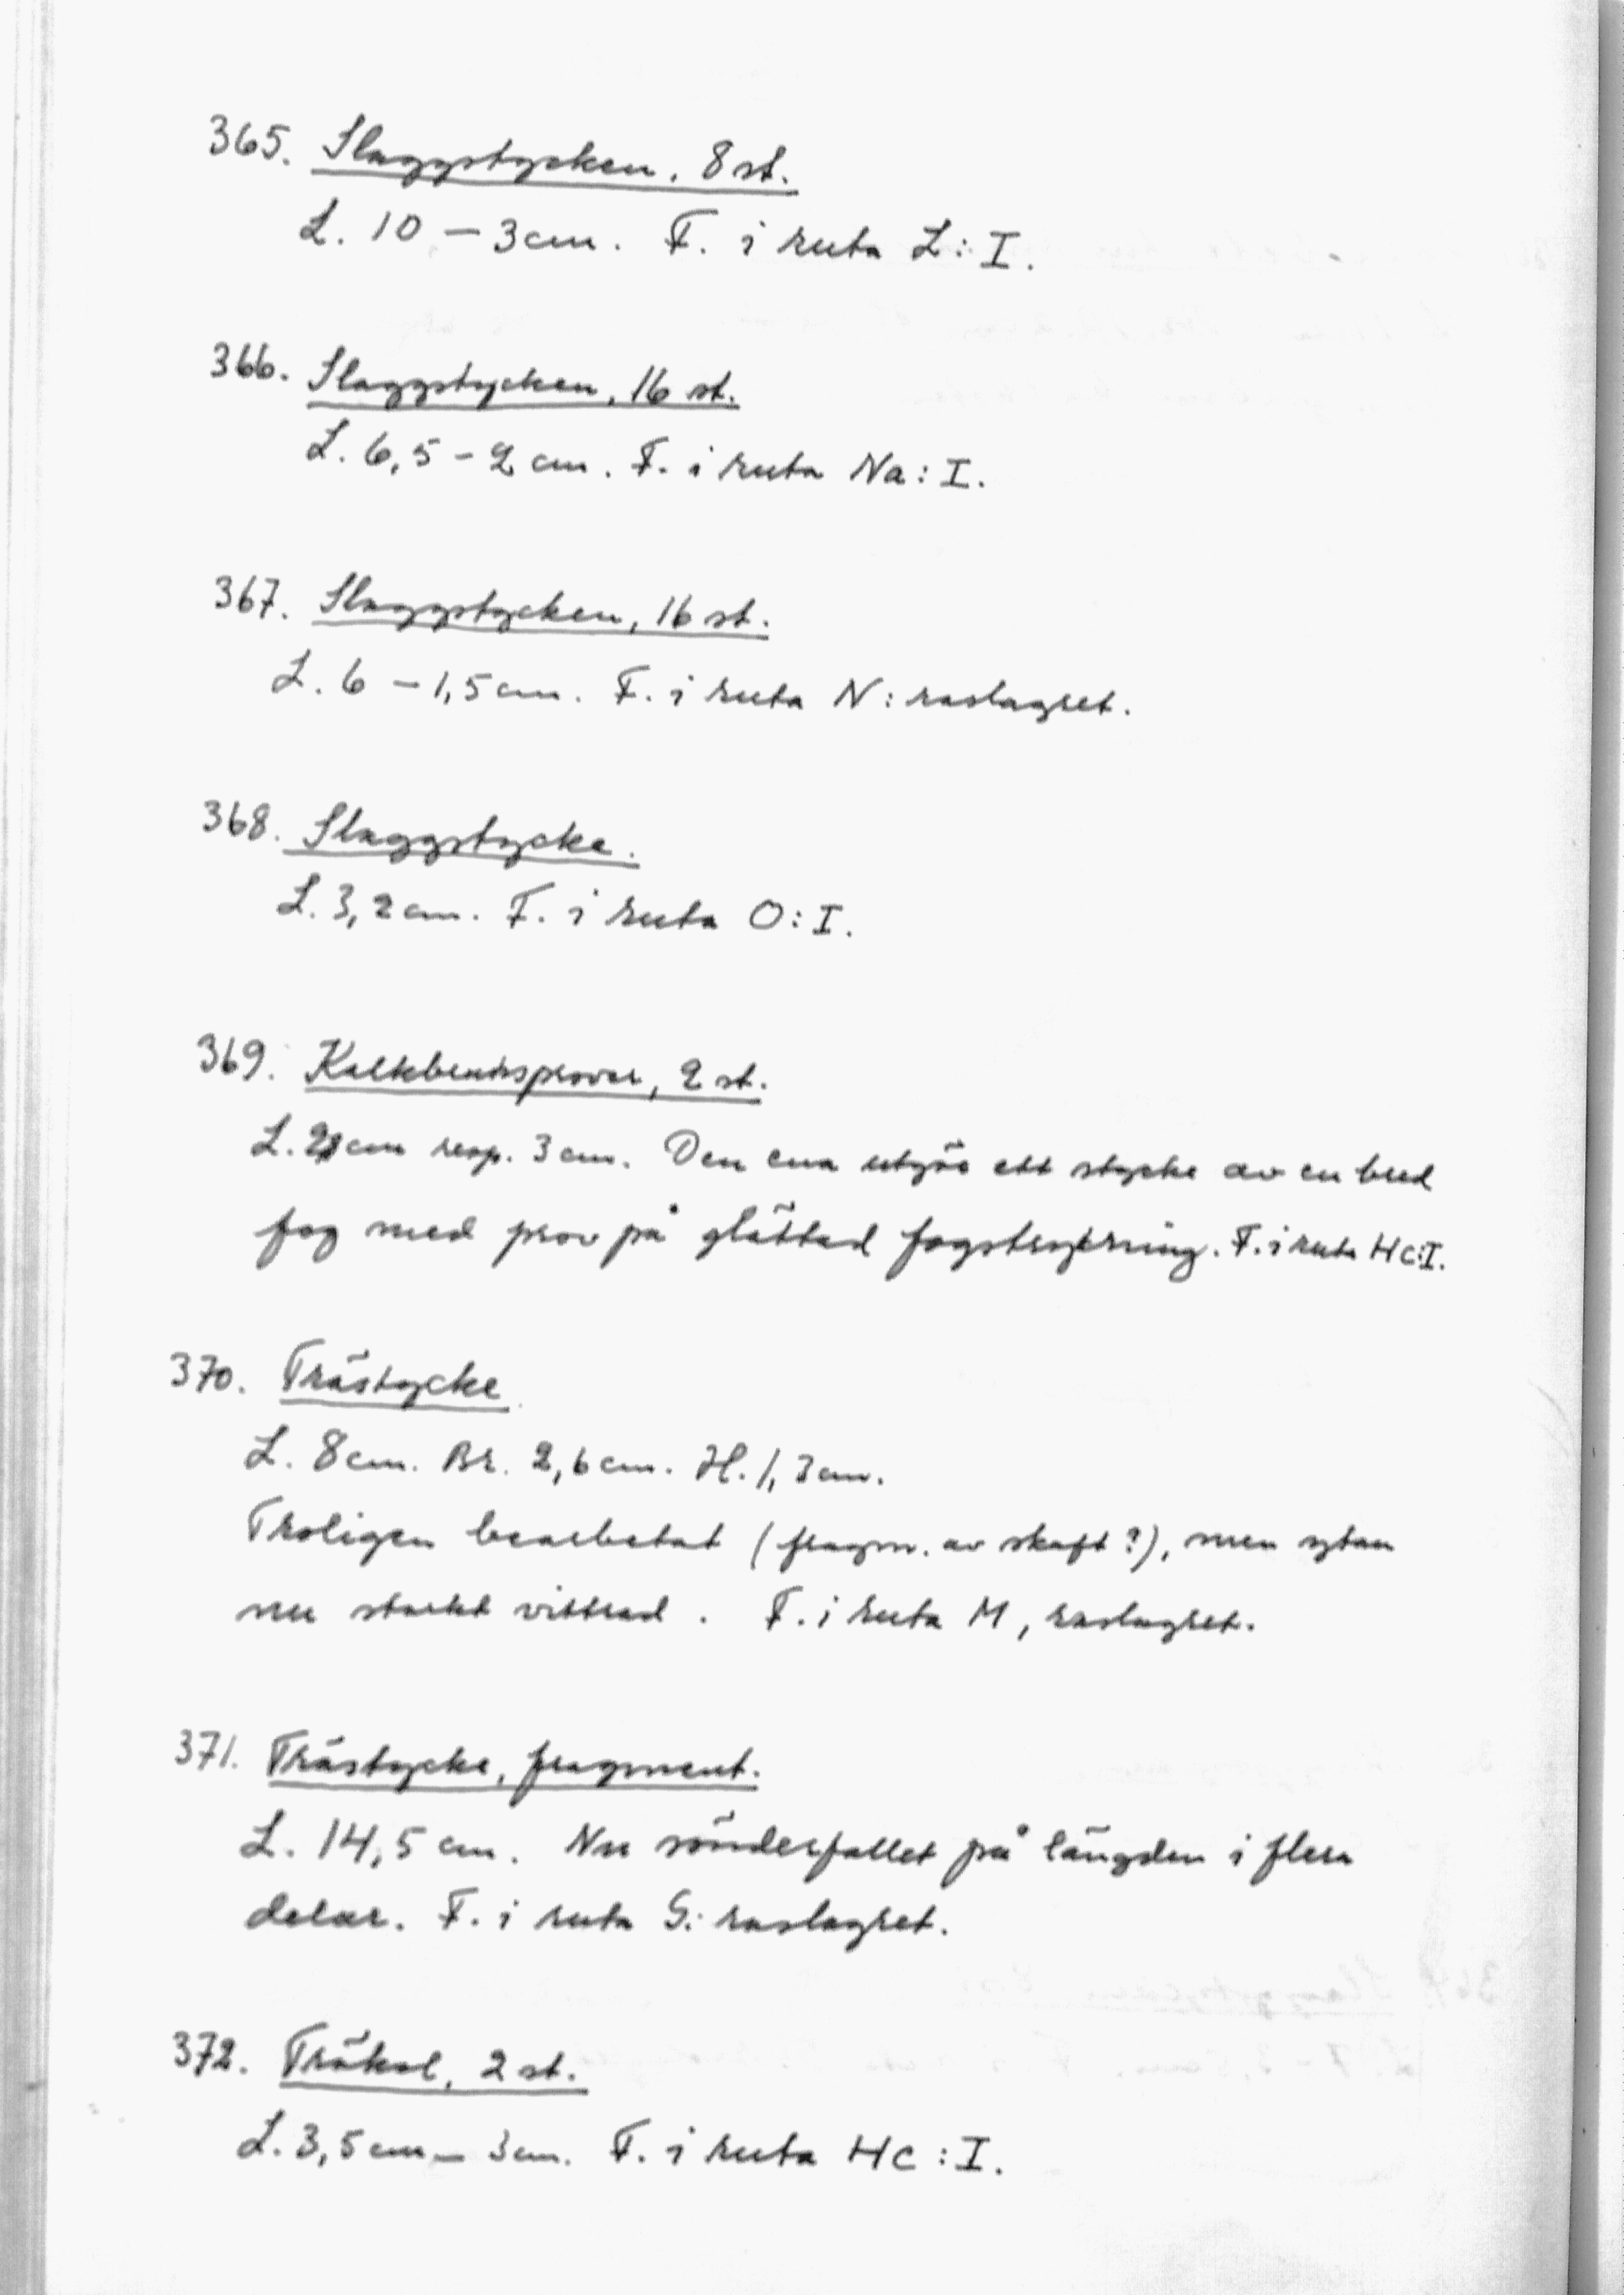 365. Slaggstycken, 8 st.
L. 10 – 3 cm. F. i ruta L: I.
366. Slaggstycken, 16 st.
L. 6,5 – 2 cm. F. i ruta Na: I.
367. Slaggstycken, 16 st.
L. 6 – 1,5 cm. F. i ruta N: raslagret.
368. Slaggstycke.
L. 3,2 cm. F. i ruta O: I.
369. Kalkbruksprover, 2 st.
L. cm resp. 3 cm. Den ena utgör ett stycke av en bred
fog med prov på glättad fogstrykning. F. i ruta Hc: I.
370. Trästycke.
L. 8 cm. Br. 2,6 cm. H. 1,3 cm.
Troligen bearbetat (fragm. av skaft?), men ytan
nu starkt vittrad. F. i ruta M, raslagret.
371. Trästycke, fragment.
L. 14,5 cm. Nu sönderfallet på längden i flera
delar. F. i ruta S: raslagret.
372. Träkol, 2 st.
L. 3,5 cm – 3 cm. F. i ruta Hc: I.